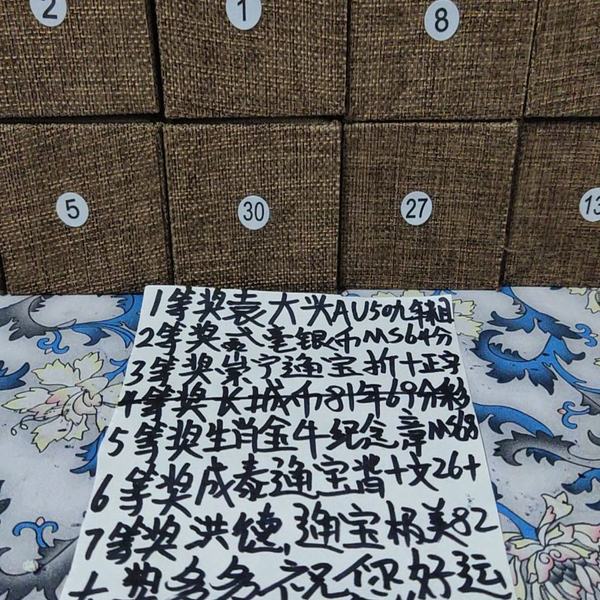 2
1
8
5
30
27
13
1等奖袁大头AU50九年粗
2等奖贰毫银币MS64分
3等奖崇宁通宝折十正字
4等奖长城币81年69分彩
5等奖生肖金牛纪念章MS68
6等奖咸泰通宝当十文26+
7等奖洪德,通宝极美82
大奖多多祝你好运